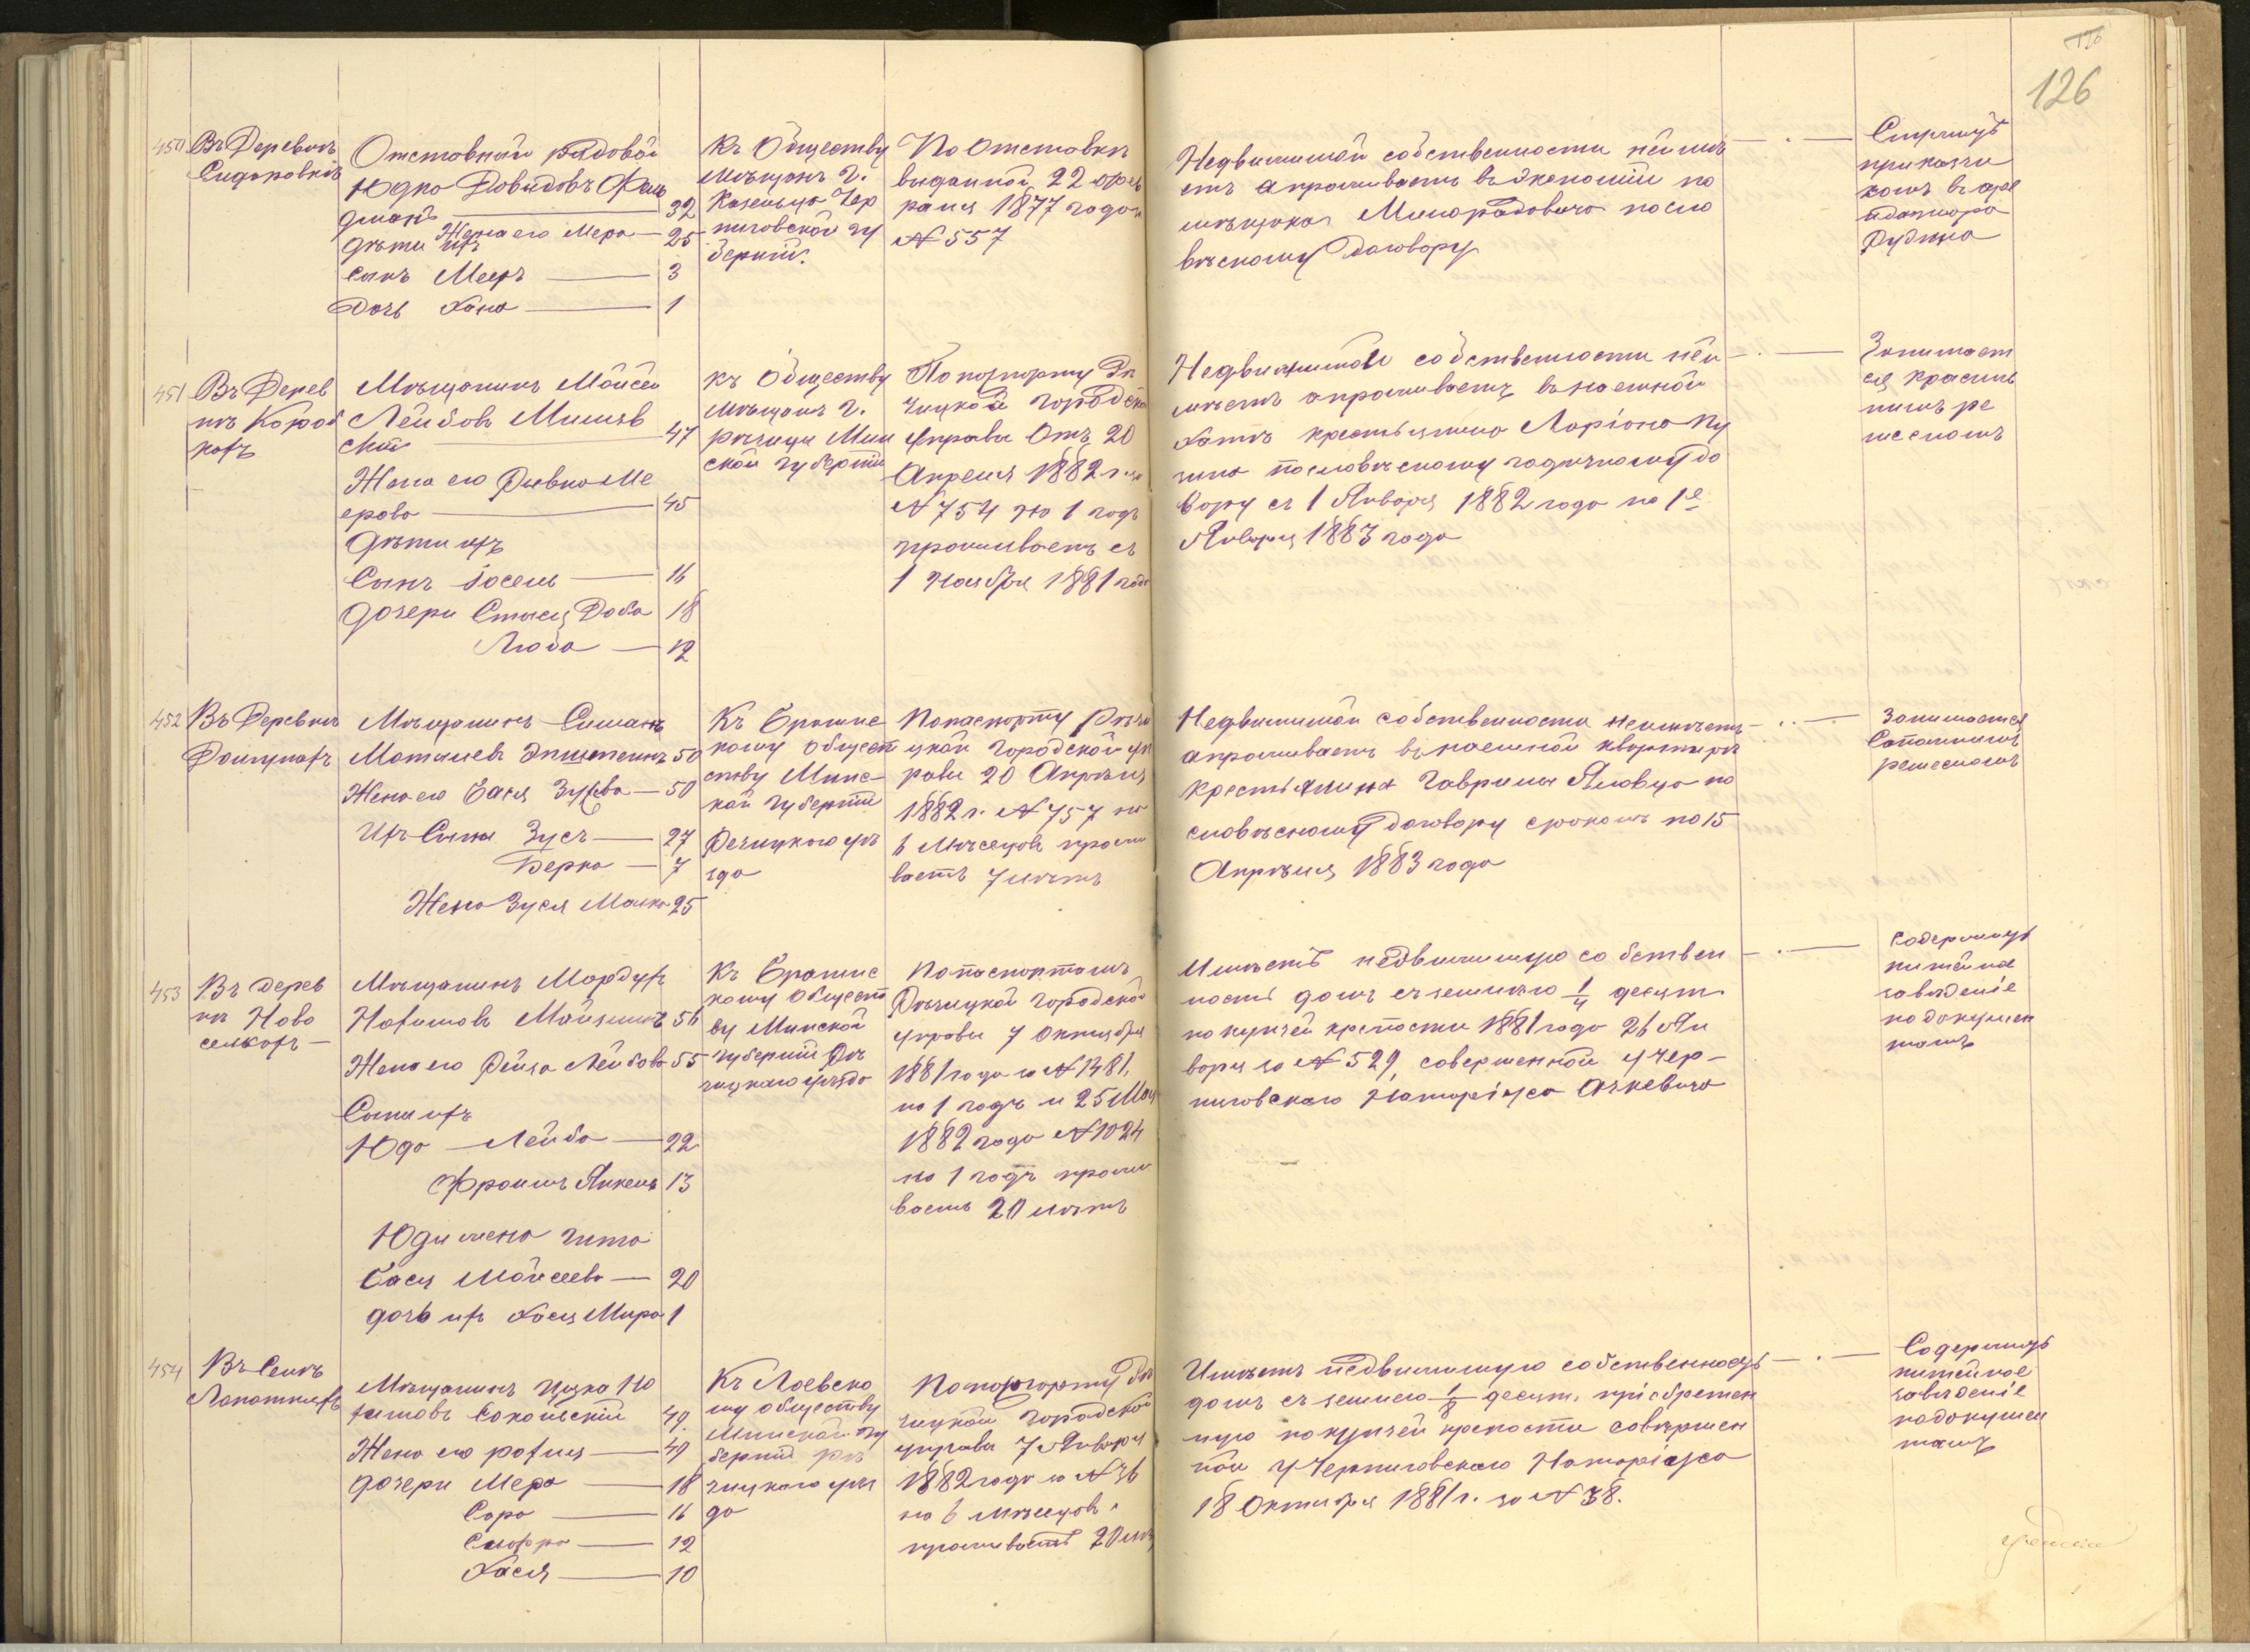 126
450
Въ Деревнѣ
Сидоровкѣ
Отставный рядовой
Юдко Довидовъ Фель
дманъ 32
Жена его Мера 25
дѣти ихъ
сынъ Мееръ 3
Дочь Хана 1
Къ Обществу
мѣщанъ г.
Козельца Чер
ниговской гу
берніи.
По отставкѣ
выданной 22 фев
раля 1877 года
№ 557
Недвижимой собственности неимѣ
етъ апроживаетъ въ Экономіи по
мѣщика Милорадовича посло
весному договору
Служитъ
прикащи
комъ в аре
ндатора
Рудина
451
Въ Дерев
нѣ Короб
кахъ
Мѣщанинъ Мойсей
Лейбовъ Миляв
скій 47
Жена его Ривка Ме
ерова 45
Дѣти ихъ
Сынъ Іосель 16
дочери Стыся Доба 18
Люба 12
къ Обществу
мѣщанъ г.
рѣчицы Мин
ской губерніи
По паспорту Рѣ
чицкой городской
Управы Отъ 20
Апреля 1882 г. за
№ 754 на 1 годъ
проживаетъ съ
1 Ноября 1881 года
Недвижимой собственности неи
мѣетъ апроживаетъ въ наемной
хатѣ крестьянина Ларіона Пу
пословѣсному годичному до
вору съ 1 Января 1882 года по 1е
Января 1883 года
Занимает
ся красиль
нимъ ре
месломъ
452
Въ Деревнѣ
Мѣщанинъ Симанъ
Мотелевъ Эпштейнъ 50
Жена его Бася Зусева 50
Ихъ Сыны Зусь 27
Берко 7
Жена Зуся Малка 25
Къ Брагинс
кому общест
ству Минс-
кой губерніи
Речицкого уѣ
зда
Попаспорту Рѣчи
цкой городской уп
равы 20 Апрѣля
1882 г. № 757 на
6 мѣсецовъ прожи
ваетъ 7 лѣтъ
Недвижимой собственности неимѣетъ
апроживаетъ въ наемной квартирѣ
крестьянина Гаврила Яловца по
словѣсному договору срокомъ по 15
Апрѣля 1883 года
Занимается
Сапожнимъ
ремесломъ
453
Въ дерев
нѣ Ново
селкахъ
Мѣщанинъ Мордухъ
Нохимовъ 56
Жена его Рейза Лейбова 55
Сыны ихъ
Юда — Лейба 22
Фроимъ Янкель 13
Юды жена Гита
Бася Мойсеева 20
дочь ихъ Хася Мира 1
Къ Брагинс
кому общест
ву Минской
губерніи Рѣ
чицкаго уѣзда
По паспортамъ
Рѣчицкой городской
управы 7 Октября
1881 года за № 1381,
на 1 годъ и 25 Мая
1882 года № 1024
на 1 годъ прожи
ваетъ 20 лѣтъ
Имѣетъ недвижимую собствен
ность домъ съ землею 1/4 десят.
по купчей крѣпости 1881 года 26 Ян
варя за № 529, совершенной у Чер-
ниговскаго Натаріуса Ачкевича
Содержитъ
питейное
заведеніе
подокумен
тамъ
454
Въ Селѣ
Мѣщанинъ Ицка На
химовъ Сокольскій 49.
Жена его рохля 40
дочери Мера 18
Сора 16
12
Хася 10
Къ Лоевско
му обществу
Минской гу
берніи рѣ
чицкого уѣз
да
По паспорту Рѣ
чицкой городской
управы 7 Января
1882 года за № 36
на 6 мѣсецовъ
проживаетъ 20 лѣтъ
Имѣетъ недвижимую собственность
домъ съ землею 1/8 десят. пріобретен
ную покупчей крепости совершен
ной у Черниговскаго Натаріуса
18 Октября 1881 г. за № 38.
Содержитъ
питейное
заведеніе
подокумен
тамъ